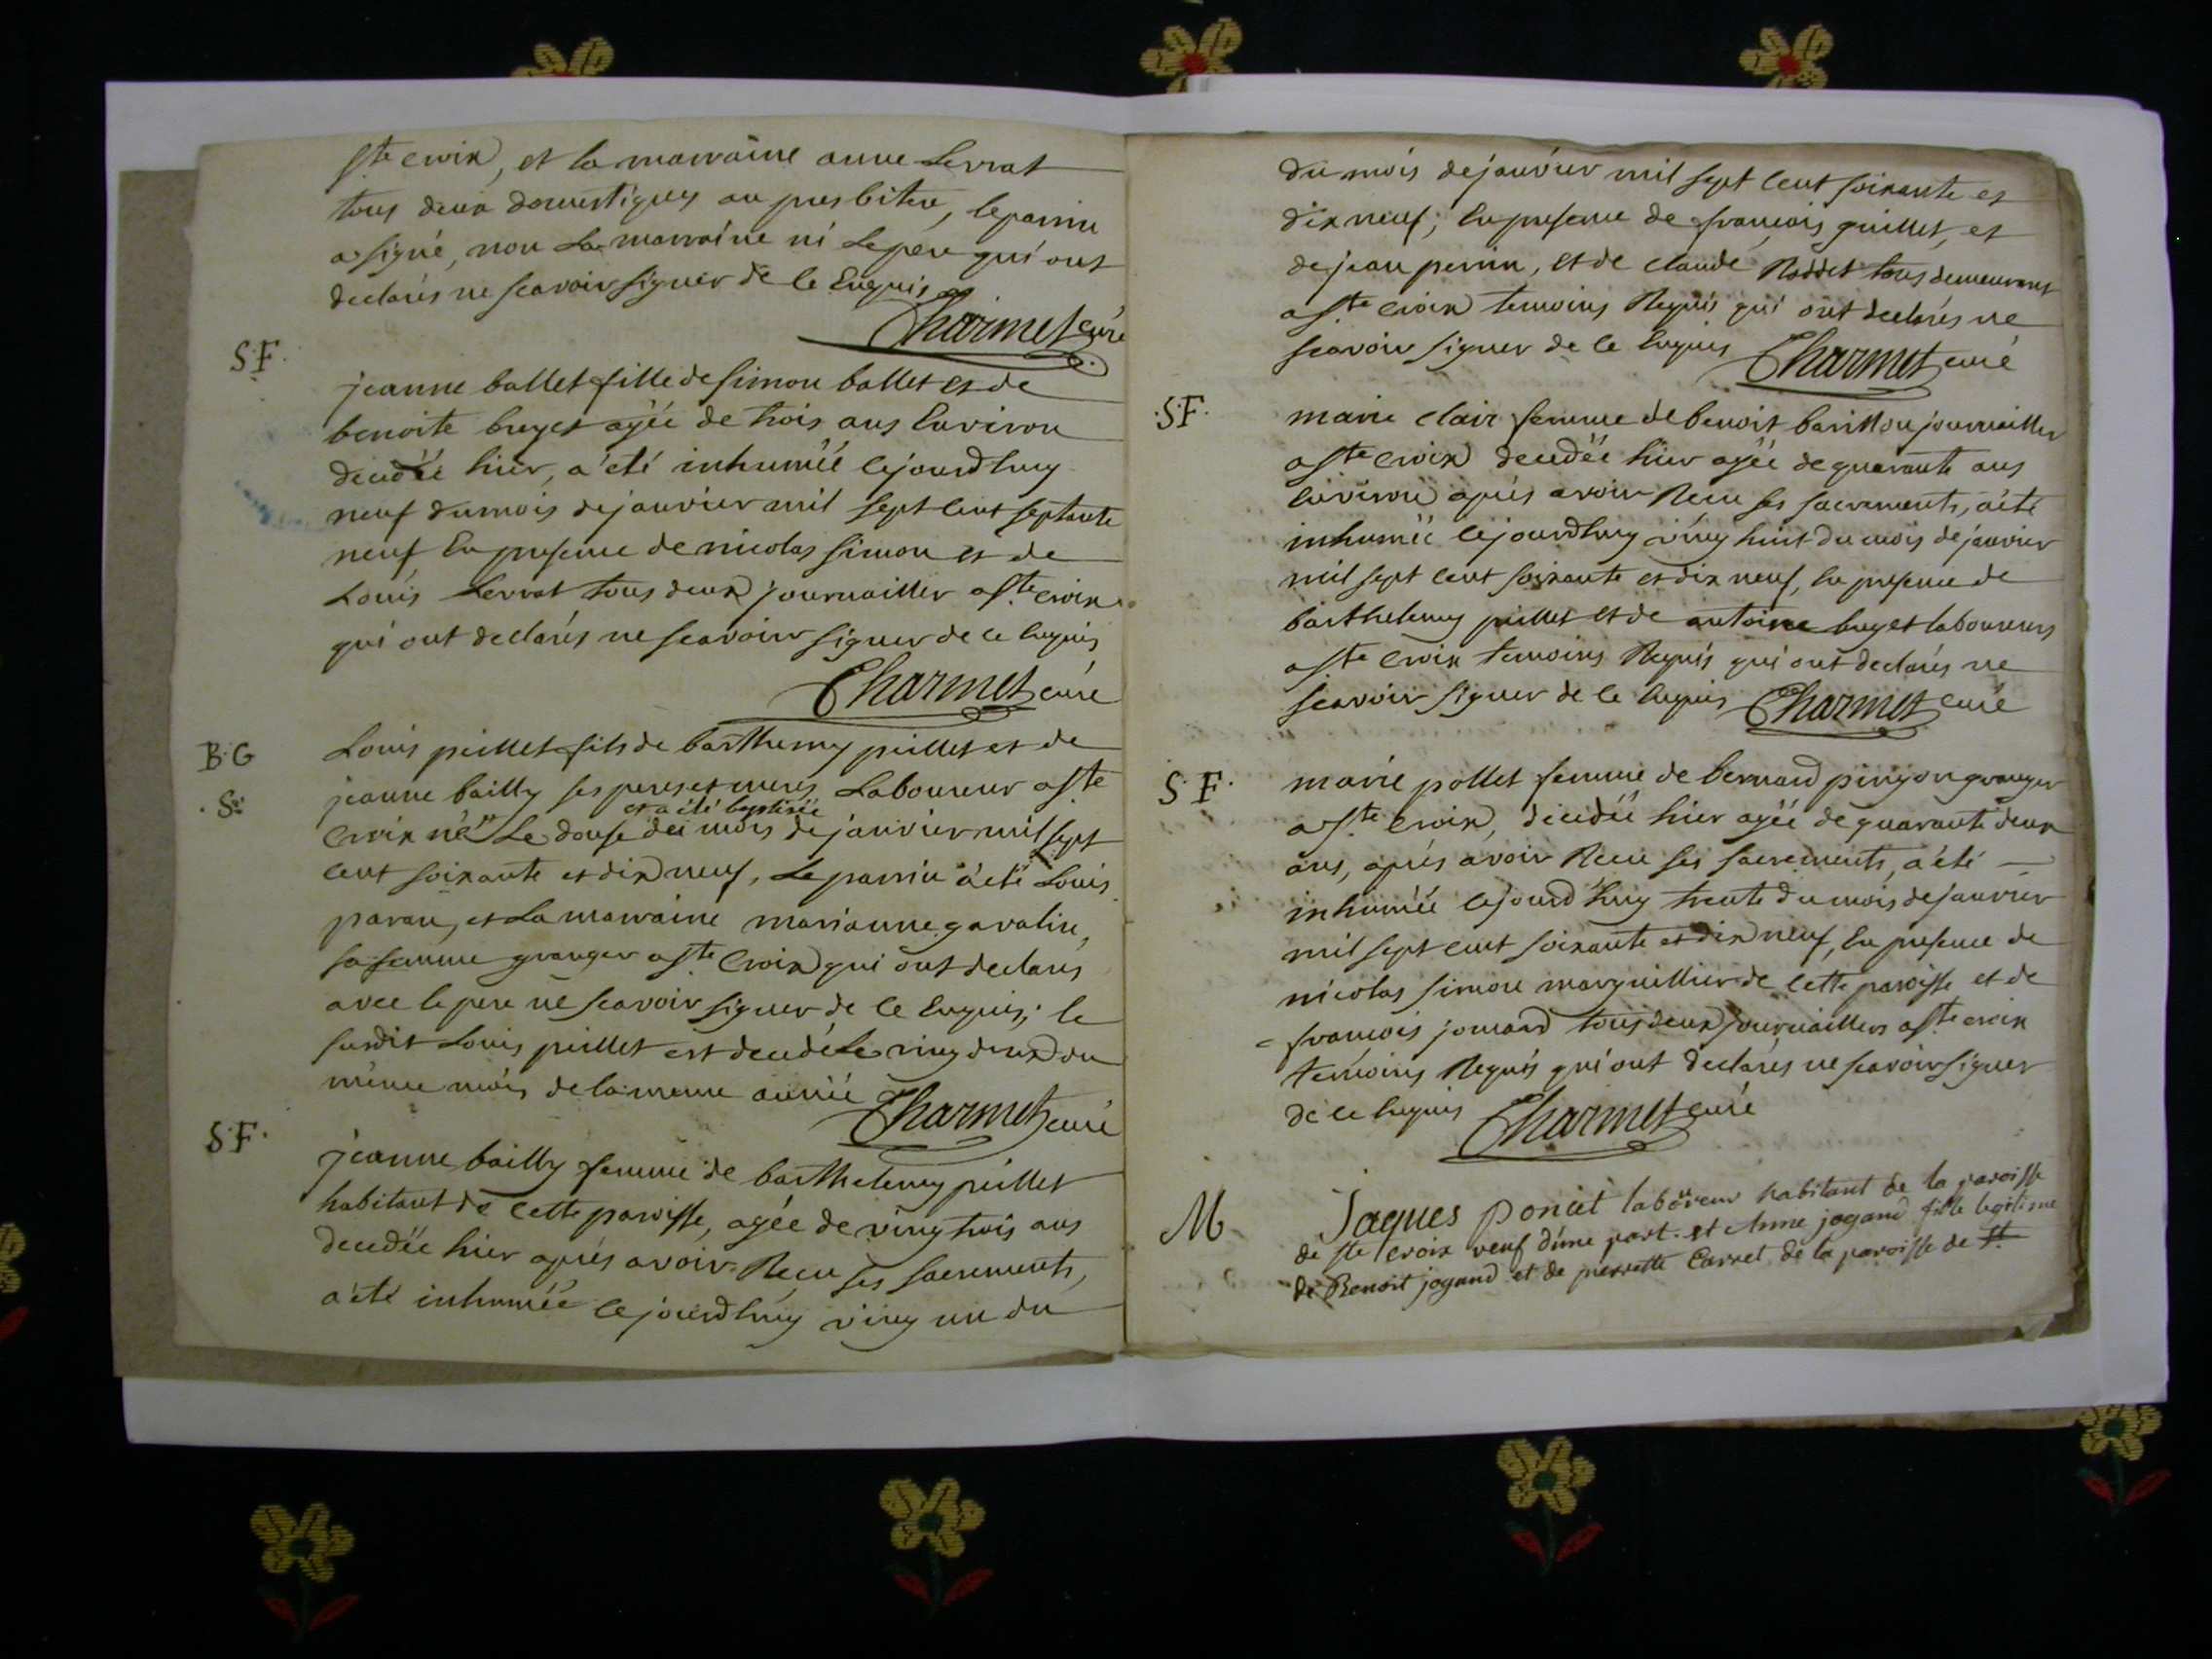 ste croix, et la marraine anne Serrat
tous deux domestiques au presbitere, le parrin
a signé, non La marraine ni Le pere qui ont
declarés ne scavoir signer de ce Enquis
Charmet curé
S.F.
jeanne ballet fille de simon ballet et de
benoite buget agée de trois ans Environ
decedée hier, a été inhumée cejourdhuy
neuf du mois de janvier mil sept cent septante
neuf En presence de nicolas simon et de
Louis Serrat tous deux journailler a ste croix
qui ont declarés ne scavoir signer de ce Enquis
Charmet curé
B.G
Louis peillet fils de barthemy peillet et de
jeanne bailly ses peres et meres Laboureur a ste
. S.
et a été baptisée
Croix né Le douse du mois de janvier mil sept
cent soixante et dix neuf, Le parrin a été Louis
, et La marraine marianne
sa femme granger a ste Croix qui ont declarés
avec le pere ne scavoir signer de ce Enquis; le
susdit Louis peillet est decedé Le ving deux du
même mois de la meme année
Charmet curé
S.F.
jeanne bailly femme de barthelemy peillet
habitant de cette paroisse, agée de ving trois ans
decedée hier aprés avoir Recu ses sacrements,
a été inhumée cejourdhuy ving un du
du mois de janvier mil sept cent soixante et
dix neuf, En presence de francois guillet, et
de jean perrin, et de claude Roddet tous demeurant
a ste croix temoins Requis qui ont declarés ne
scavoir signer de ce Enquis Charmet curé
.S.F.
marie clair femme de benoit barillon journailler
a ste croix decedée hier agée de quarante ans
Environ aprés avoir Recu ses sacrements, a été
inhumée cejourdhuy ving huit du mois de janvier
mil sept cent soixante et dix neuf, En presence de
barthelemy peillet et de antoine buget laboureurs
a ste Croix temoins Requis qui ont declarés ne
scavoir signer de ce Enquis Charmet curé
S.F.
marie pollet femme de bernard pingon granger
a ste Croix, decedée hier agée de quarante deux
ans, aprés avoir Recu ses sacrements, a été
inhumée cejourd'huy trente du mois de janvier
mil sept cent soixante et dix neuf, En presence de
nicolas simon marguillier de cette paroisse et de
francois jomard tous deux journaillers a ste croix
temoins Requis qui ont declarés ne scavoir signer
de ce Enquis Charmet curé
M
Jaques poncet laboureur habitant de la paroisse
de ste croix veuf d'une part. et Anne jogand fille legitime
de Benoit jogand et de pierrette Carret de la paroisse de St